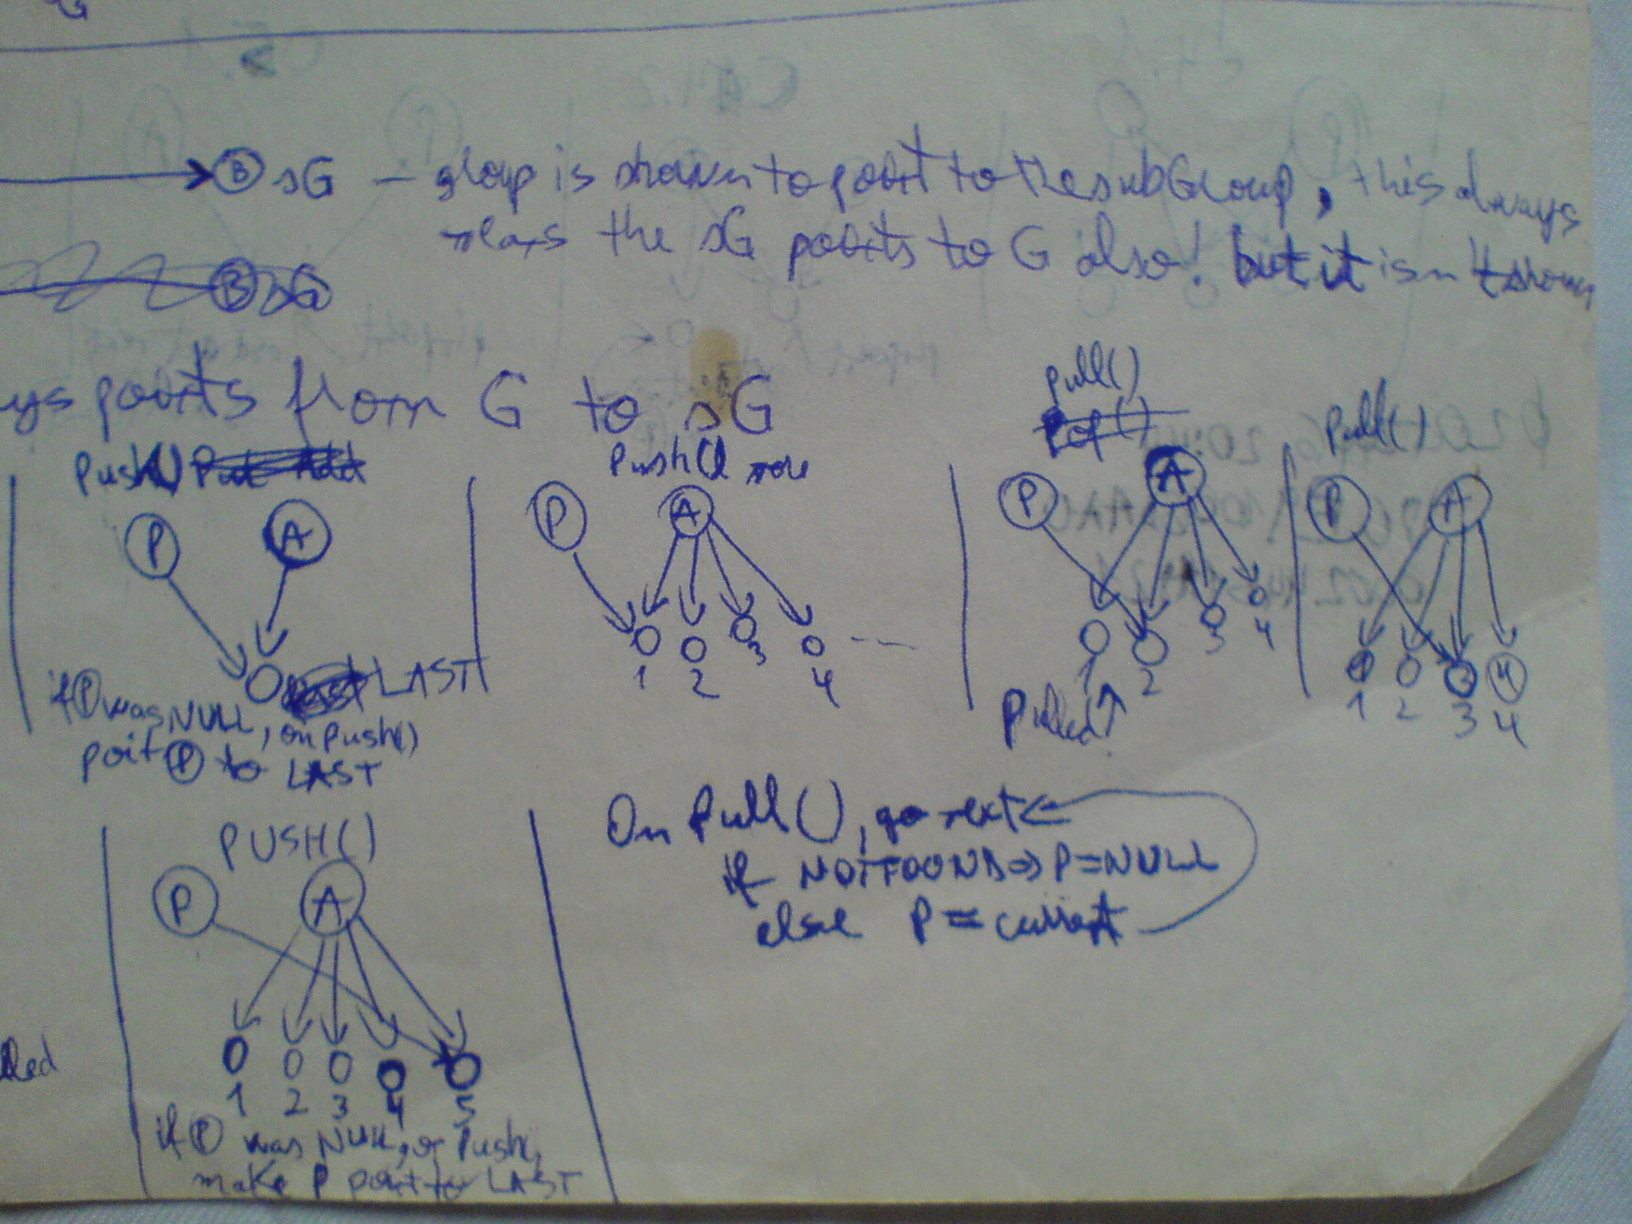 B sG – group is shown to point to the subGroup, this always
means the sG points to G also! but it isn't shown
B sG
ys points from G to sG
Push()
P A
LAST
if P was NULL, on push()
poit P to LAST
Push() more
P A
1 2 3 4
pull()
P A
1 2 3 4
Pulled
Pull()
P A
1 2 3 4
PUSH()
P A
1 2 3 4 5
if P was NULL, on Push,
make P point to LAST
On Pull(), go next
if NOTFOUND => P=NULL
else P = current